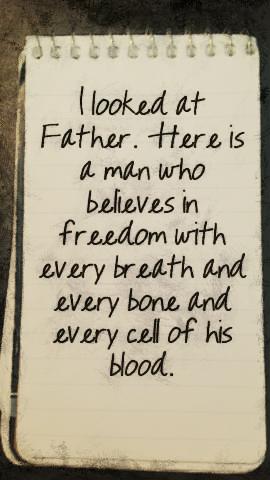 I looked at
Father. Here is
a man who
believes in
freedom with
every breath and
every bone and
every cell of his
blood.